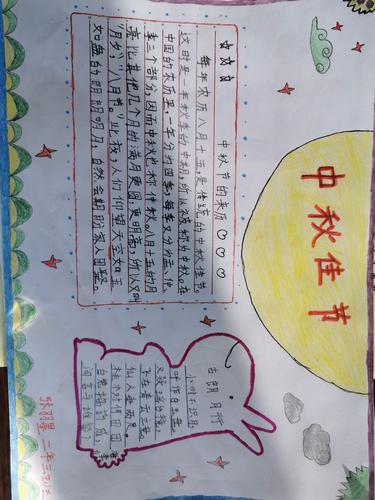 中秋佳节
中秋节的来历
每年农历八月十五,是传统的中秋佳节。
这时是一年秋季的中期,所以被称为中秋。在
中国的农历里,一年分为四季,每季又分为孟、仲、
季三个部分,因而中秋也称仲秋。八月十五的月
亮比其他几个月的满月更圆,更明亮,所以又叫
"月夕","八月节"。此夜,人们仰望天空如玉
如盘的朗朗明月,自然会期盼家人团聚。
古朗月行
小时不识月,
呼作白玉盘。
又疑瑶台镜,
飞在青云端。
仙人垂两足,
桂树何团团。
白兔捣药成,
问言与谁餐?
二年三班